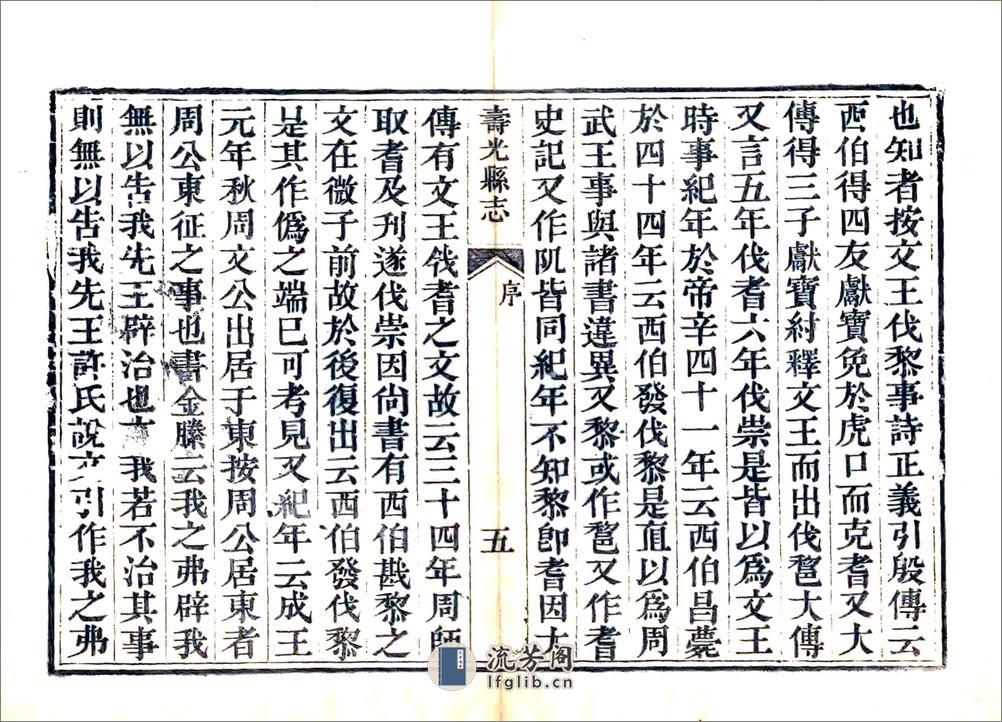 也知者按文王伐黎事詩正義引殷傳云
西伯得四友獻寶免於虎口而克耆又大
傳得三子獻寶紂釋文王而出伐䣛大傳
又言五年伐耆六年伐崇是皆以爲文王
時事紀年於帝辛四十一年云西伯昌薨
於四十四年云西伯發伐黎是直以爲周
武王事與諸書違異又黎或作䣛又作耆
史記又作阢皆同紀年不知黎卽耆因大
壽光縣志
序
五
傳有文王伐耆之文故云三十四年周師
取耆及邘遂伐崇因尙書有西伯戡黎之
文在微子前故於後復出云西伯發伐黎
是其作僞之端已可考見又紀年云成王
元年秋周文公出居于東按周公居東者
周公東征之事也書金縢云我之弗辟我
無以告我先王辟治也 我若不治其事
則無以告我先王許氏說文引作我之弗
流芳阁
lfglib.cn